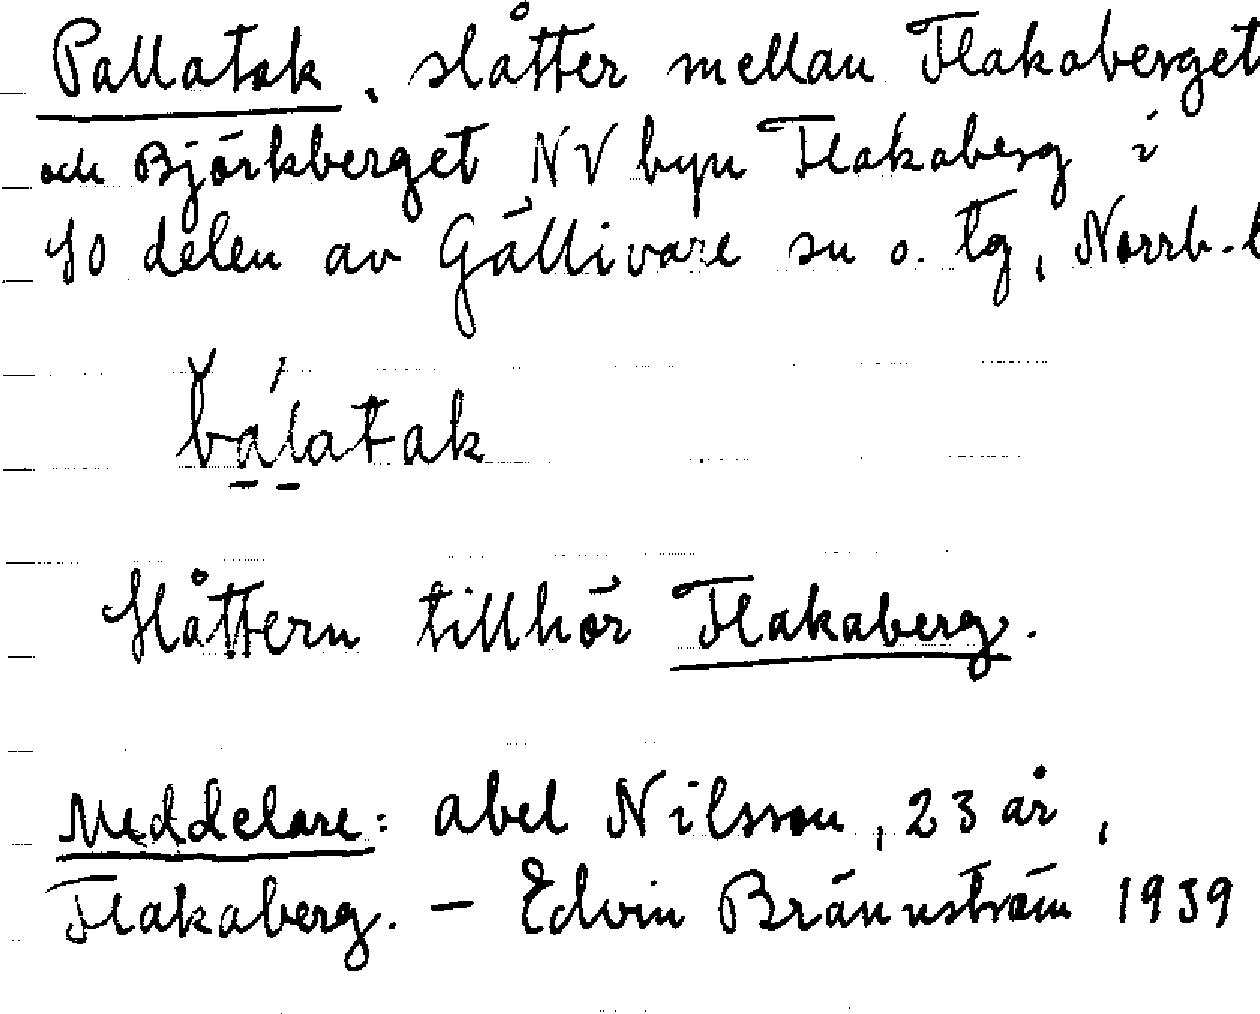 Pallatak, slåtter mellan Flakaberget
och Björkberget NV byn Flakaberg i
SO delen av Gällivare sn o. tg, Norrb. l
b̌álatak
Slåttern tillhör Flakaberg.
Meddelare: Abel Nilsson, 23 år,
Flakaberg. — Edvin Brännström 1939